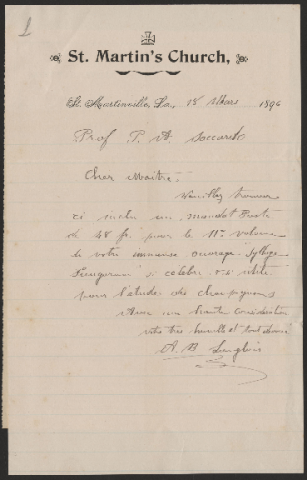 1
St. Martin's Church,
St. Martinville, La., 18 Mars 1896
Prof P. A. Saccardo
Cher Maitre:
Veuillez trouver
ci inclu un mandat Poste
de 48 fr. pour le 11me volume
de votre immense ouvrage "Sylloge
Fungorum" si celebre et si utile
pour l'etude des champignons
Avec une haute consideration
votre tres humble et tout devoué
A. B. Langlois